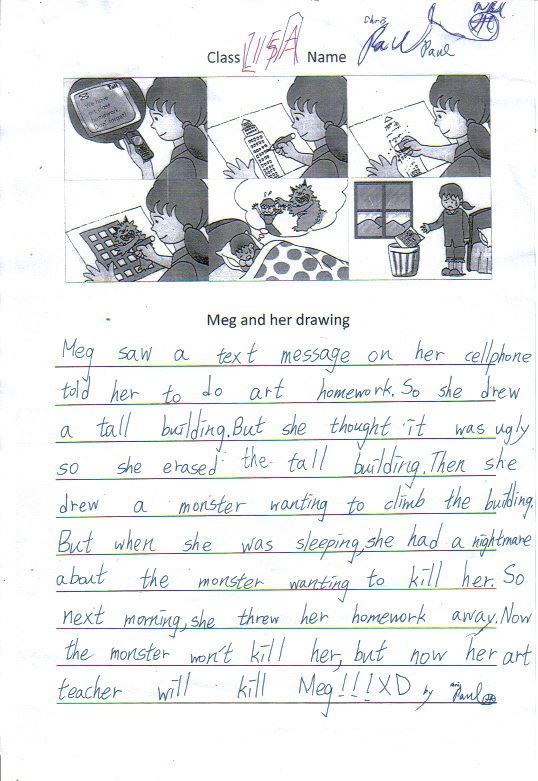 Class Name
Paul Paul
Meg and her drawing
Meg saw a text message on her cellphone
told her to do art homework. So she drew
a tall building. But she thought it was ugly
so she erased the tall building. Then she
drew a monster wanting to climb the building.
But when she was sleeping, she had a nightmare
about the monster wanting to kill her. So
next morning, she threw her homework away. Now
the monster won't kill her, but now her art
teacher will kill Meg!!! XD by Paul